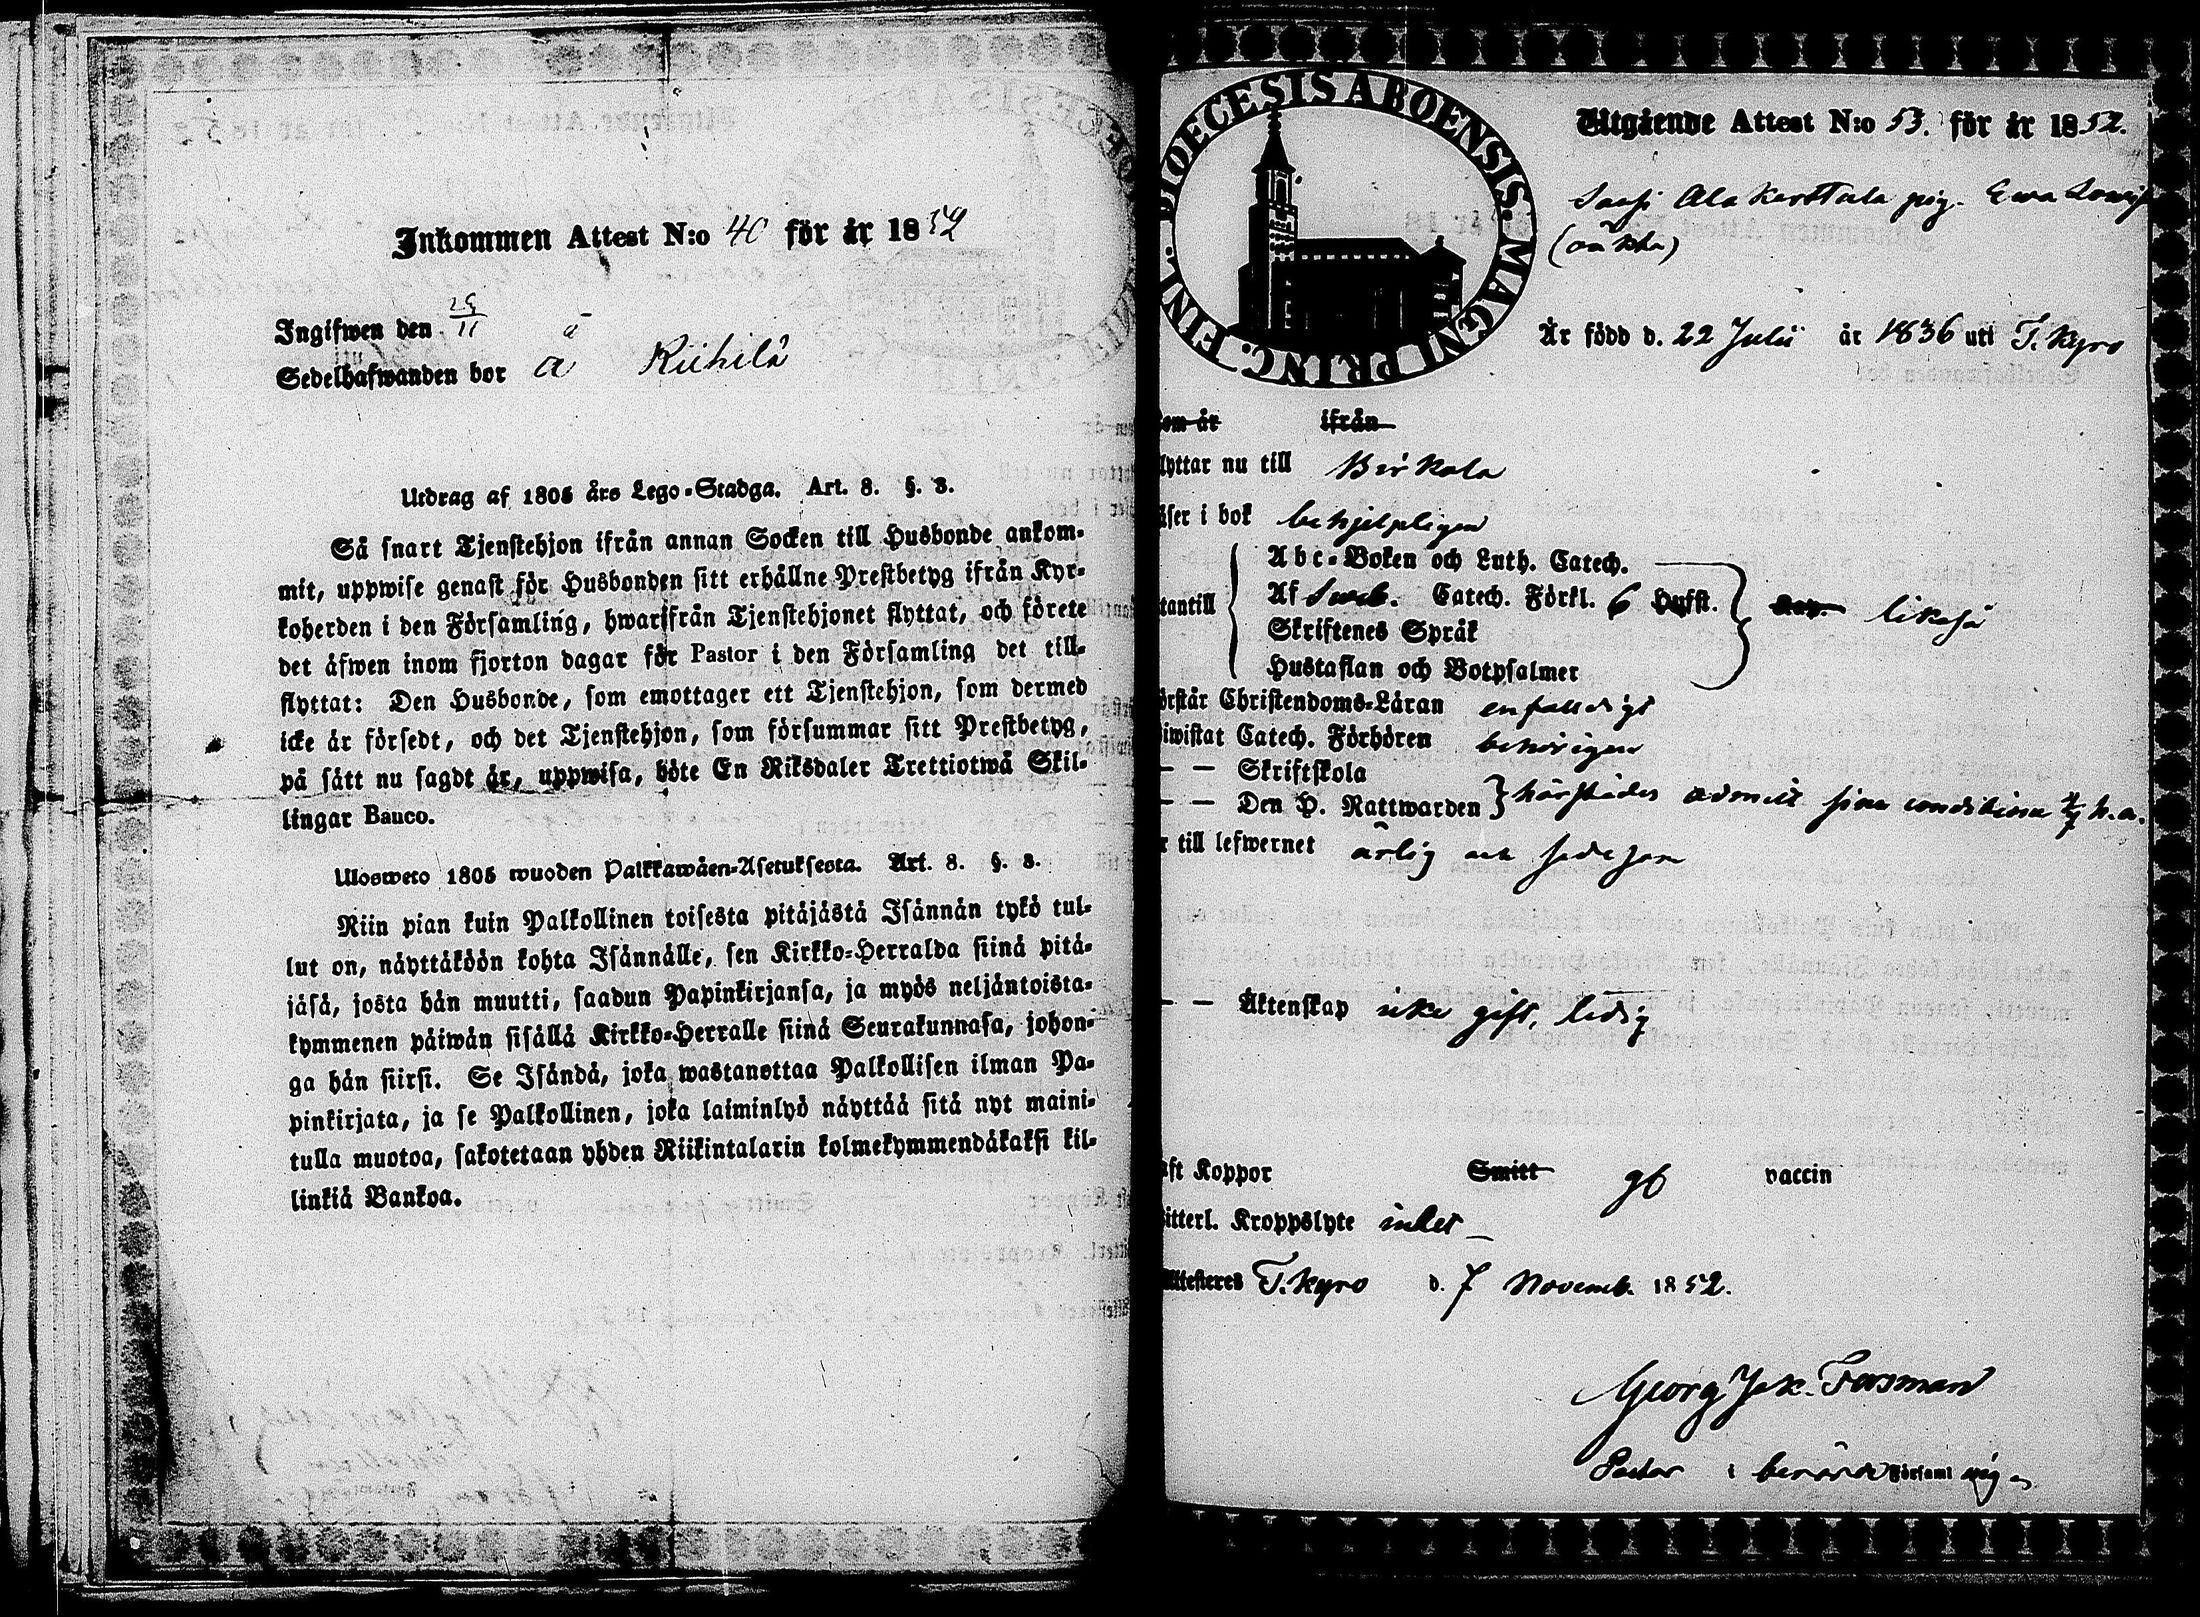 Inkommen Attest N:o 40 för år 1852
Ingifwen den 29/11
Sedelhafwanden bor å Riihilä
Utdrag af 1805 års Lego-Stadga. Art. 8. §. 3.
Så snart Tjenstehjon ifrån annan Socken till Husbonde ankom-
mit, uppwise genast för Husbonden sitt erhållne Prestbetyg ifrån Kyr-
koherden i den Församling, hwarifrån Tjenstehjonet flyttat, och förete
det äfwen inom fjorton dagar för Pastor i den Församling det till-
flyttat: Den Husbonde, som emottager ett Tjenstehjon, som dermed
icke är försedt, och det Tjenstehjon, som försummar sitt Prestbetyg,
på sätt nu sagdt är, uppwisa, böte En Riksdaler Trettiotwå Skil-
lingar Banco.
Ulosweto 1805 wuoden Palkkawäen-Asetuksesta. Art. 8. §. 3.
Niin pian kuin Palkollinen toisesta pitäjästä Isännän tykö tul-
lut on, näyttäköön kohta Isännälle, sen Kirkko-Herralda siinä pitä-
jäsä, josta hän muutti, saadun Papinkirjansa, ja myös neljäntoista-
kymmenen päiwän sisällä Kirkko-Herralle siinä Seurakunnasa, johon-
ga hän siirsi. Se Isändä, joka wastanottaa Palkollisen ilman Pa-
pinkirjata, ja se Palkollinen, joka laiminlyö näyttää sitä nyt maini-
tulla muotoa, sakotetaan yhden Riikintalarin kolmekymmendäkaksi kil-
linkiä Bankoa.
DIOECESIS ABOENSIS. MAGNI PRINC. FINL.
Utgående Attest N:o 53. för år 1852.
Ala Karttula pig. Ewa
(oäkta)
Är född d. 22 Julii år 1836 uti T. Kyro
om är ifrån
lyttar nu till Birkala
äser i bok behjelpligen
tantill
Abc-Boken och Luth. Catech.
Af Sweb. Catech. Förkl. 6 Hufst.
Skriftenes Språk
Hustaflan och Botpsalmer
likaså
örstår Christendoms-Läran enfaldigt
iwistat Catech. Förhören behörigen
— — Skriftskola
— — Den H. Nattwarden härstädes admitt sine conditione h. a.
r till lefwernet ärlig och sedesam
— — Äktenskap icke gift, ledig
aft Koppor Smitt gb vaccin
itterl. Kroppslyte intet
ttesteres T. Kyro d. 7 Novemb. 1852.
Georg Jak. Forsman
Pastor i berörde Församl